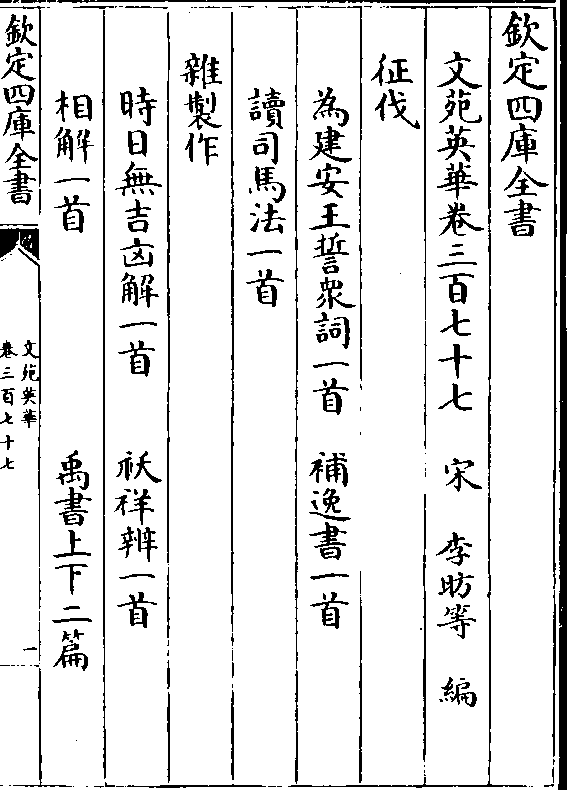 欽定四庫全書
文苑英華卷三百七十七　宋　李昉等　編
征伐
為建安王誓衆詞一首　補逸書一首
讀司馬法一首
雜製作
時日無吉凶解一首　祅祥辨一首
相解一首　禹書上下二篇
欽定四庫全書
文苑英華
卷三百七十七
一